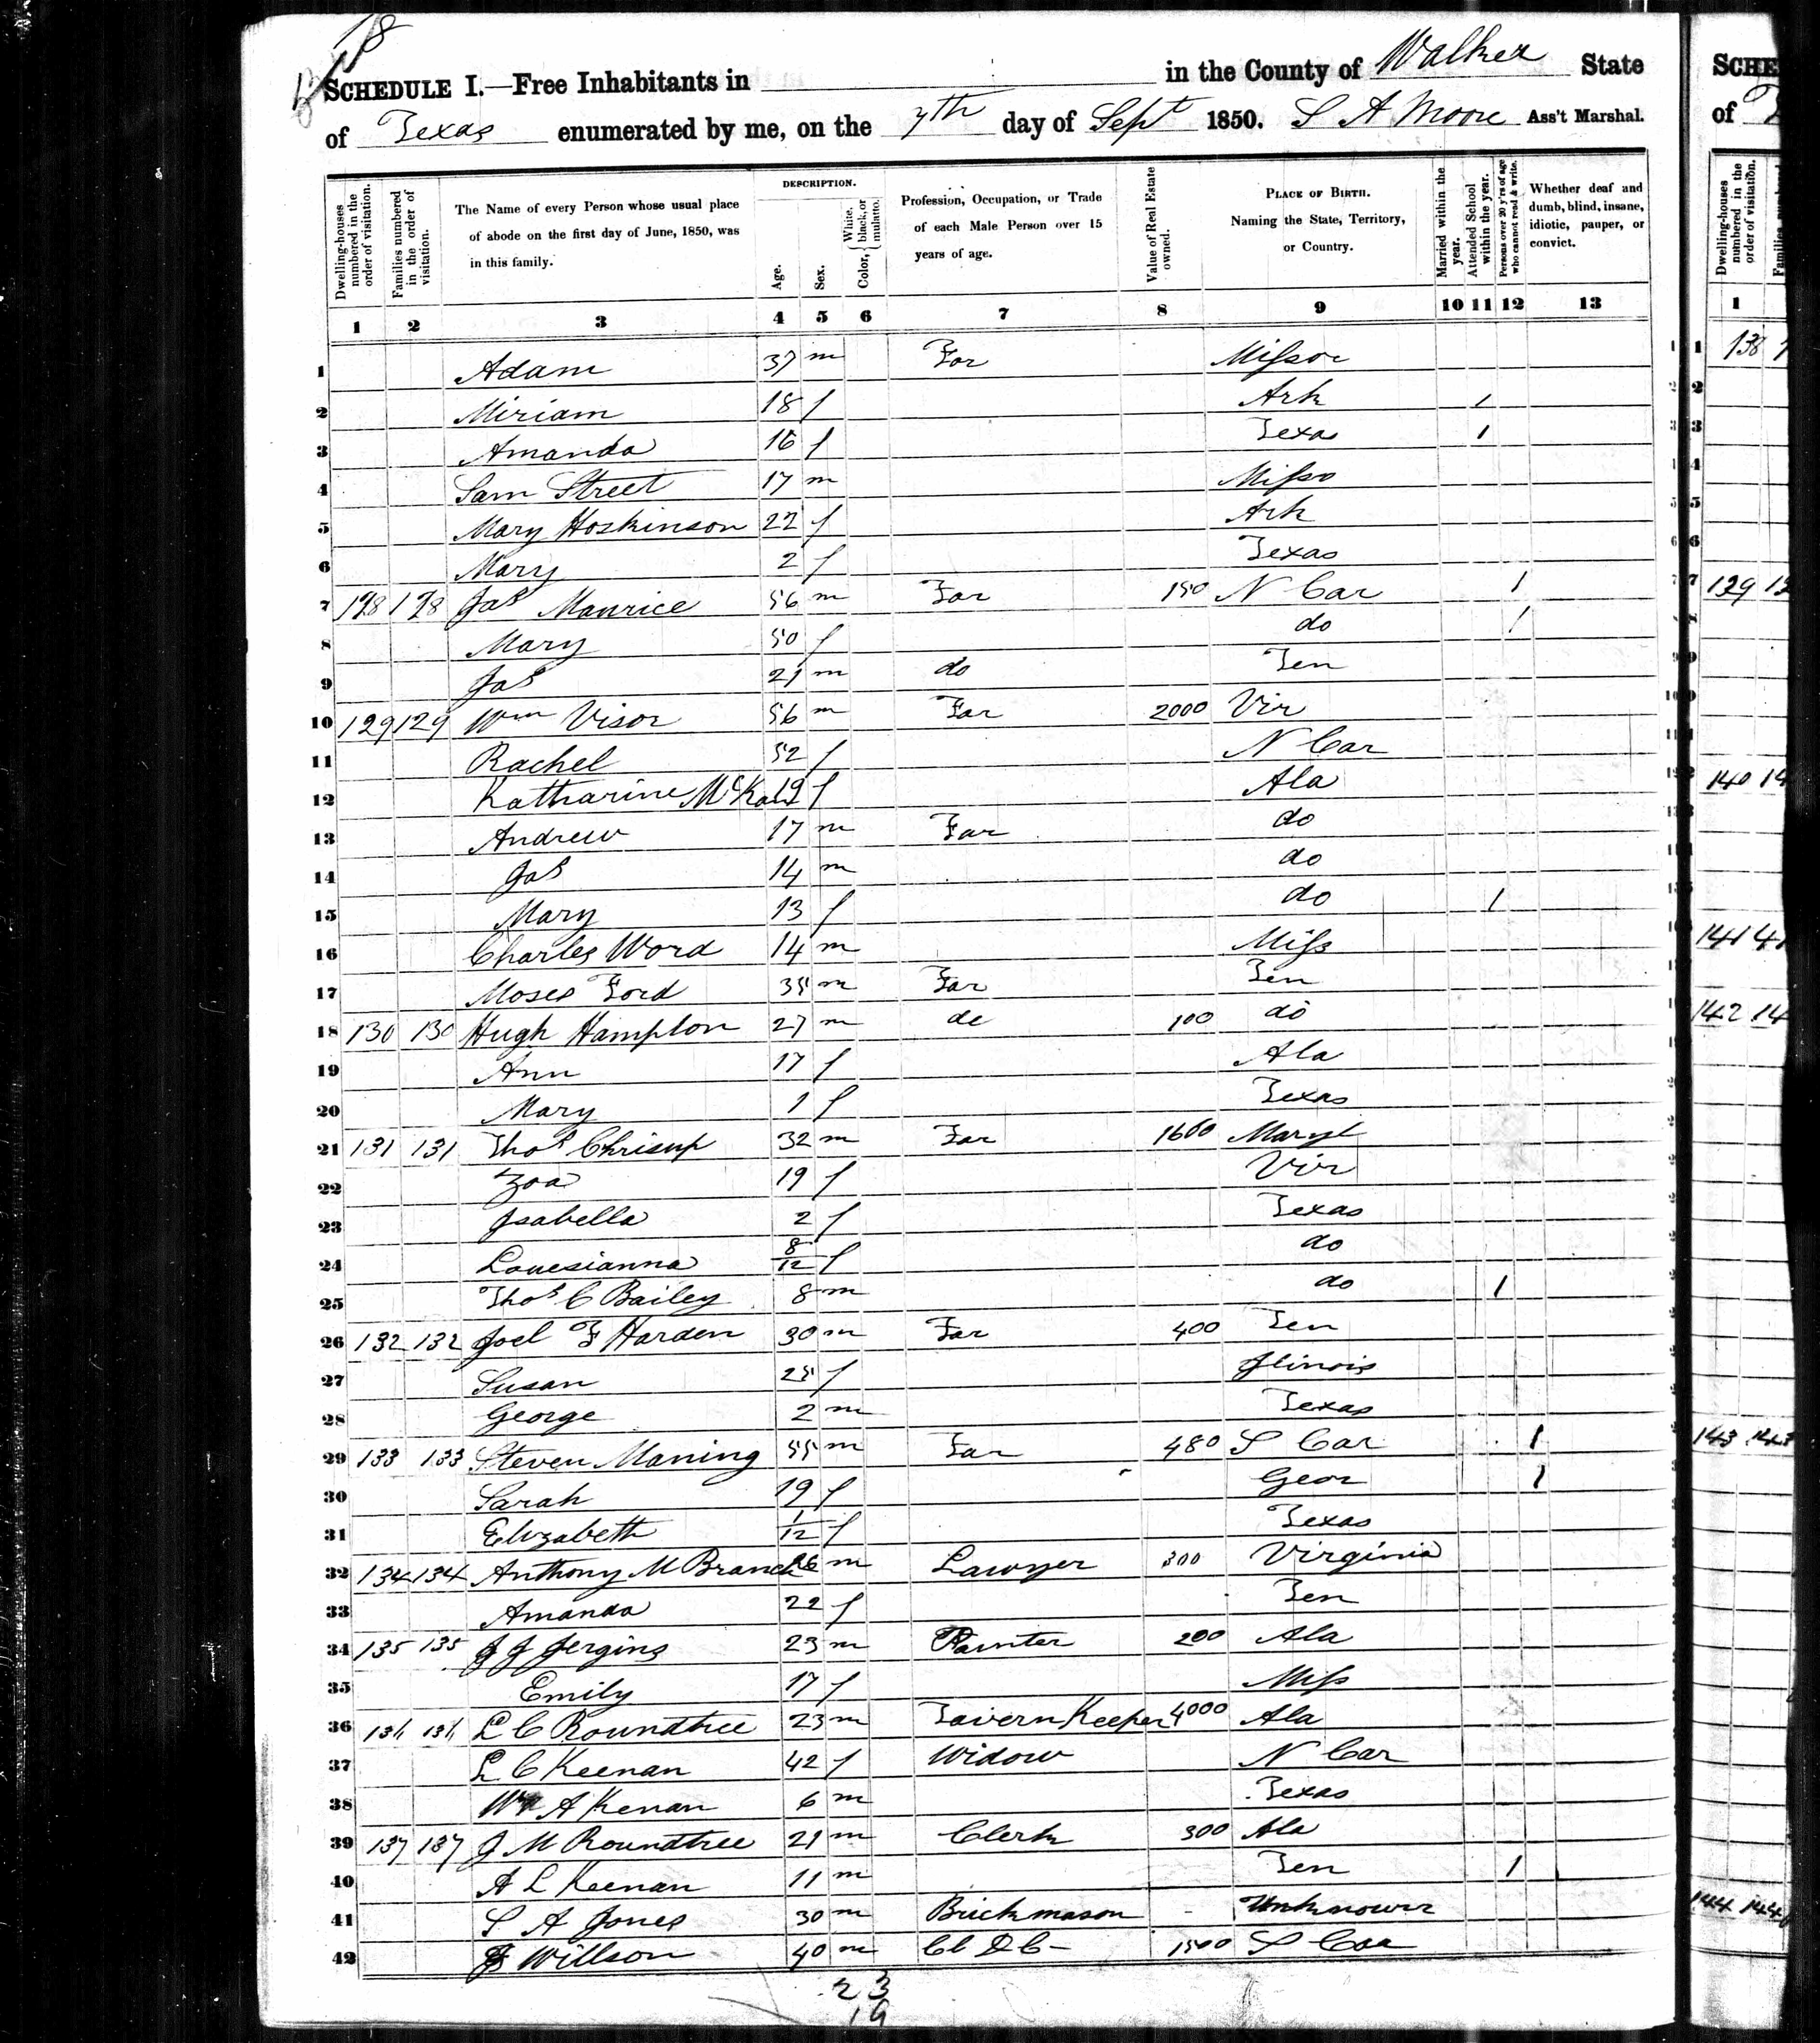 18
SCHEDULE I.—Free Inhabitants in in the County of Walker State
of Texas enumerated by me, on the 7th day of Sept 1850. S A Moore Ass't Marshal.
Dwelling-houses numbered in the order of visitation.
Families numbered in the order of visitation.
The Name of every Person whose usual place of abode on the first day of June, 1850, was in this family.
DESCRIPTION.
Age.
Sex.
Color, { White, black, or mulatto.
Profession, Occupation, or Trade of each Male Person over 15 years of age.
Value of Real Estate owned.
PLACE OF BIRTH. Naming the State, Territory, or Country.
Married within the year.
Attended School within the year.
Persons over 20 y'rs of age who cannot read & write.
Whether deaf and dumb, blind, insane, idiotic, pauper, or convict.
1 2 3 4 5 6 7 8 9 10 11 12 13
1 Adam 37 m Far Missor
2 Miriam 18 f Ark 1
3 Amanda 16 f Texas 1
4 Sam Street 17 m Misso
5 Mary Hoskinson 22 f Ark
6 Mary 2 f Texas
7 128 128 Jas Maurice 56 m Far 150 N Car 1
8 Mary 50 f do 1
9 Jas 21 m do Ten
10 129 129 Wm Visor 56 m Far 2000 Vir
11 Rachel 52 f N Car
12 Katharine 19 f Ala
13 Andrew 17 m Far do
14 Jas 14 m do
15 Mary 13 f do 1
16 Charles Word 14 m Miss
17 Moses Ford 35 m Far Ten
18 130 130 Hugh Hampton 27 m do 100 do
19 Ann 17 f Ala
20 Mary 1 f Texas
21 131 131 Thos Chrisup 32 m Far 1600 Maryl
22 Zoa 19 f Vir
23 Isabella 2 f Texas
24 Louesianna 8/12 f do
25 Thos C Bailey 8 m do 1
26 132 132 Joel F Harden 30 m Far 400 Ten
27 Susan 25 f Ilinois
28 George 2 m Texas
29 133 133 Steven Maning 55 m Far 480 S Car 1
30 Sarah 19 f Geor 1
31 Elizabeth 1/12 f Texas
32 134 134 Anthony M Branch 26 m Lawyer 300 Virginia
33 Amanda 22 f Ten
34 135 135 J J Jergins 23 m Painter 200 Ala
35 Emily 17 f Miss
36 136 136 L C Roundtree 23 m Tavern Keeper 4000 Ala
37 L C Keenan 42 f Widow N Car
38 Wm A Kenan 6 m Texas
39 137 137 J M Roundtree 21 m Clerk 300 Ala
40 A L Keenan 11 m Ten 1
41 S A Jones 30 m Brickmason - Unknown
42 Willson 40 m 1500 S Car
23
19
SCHE
of
1
138
129
140 14
141
142 14
143 143
144 144